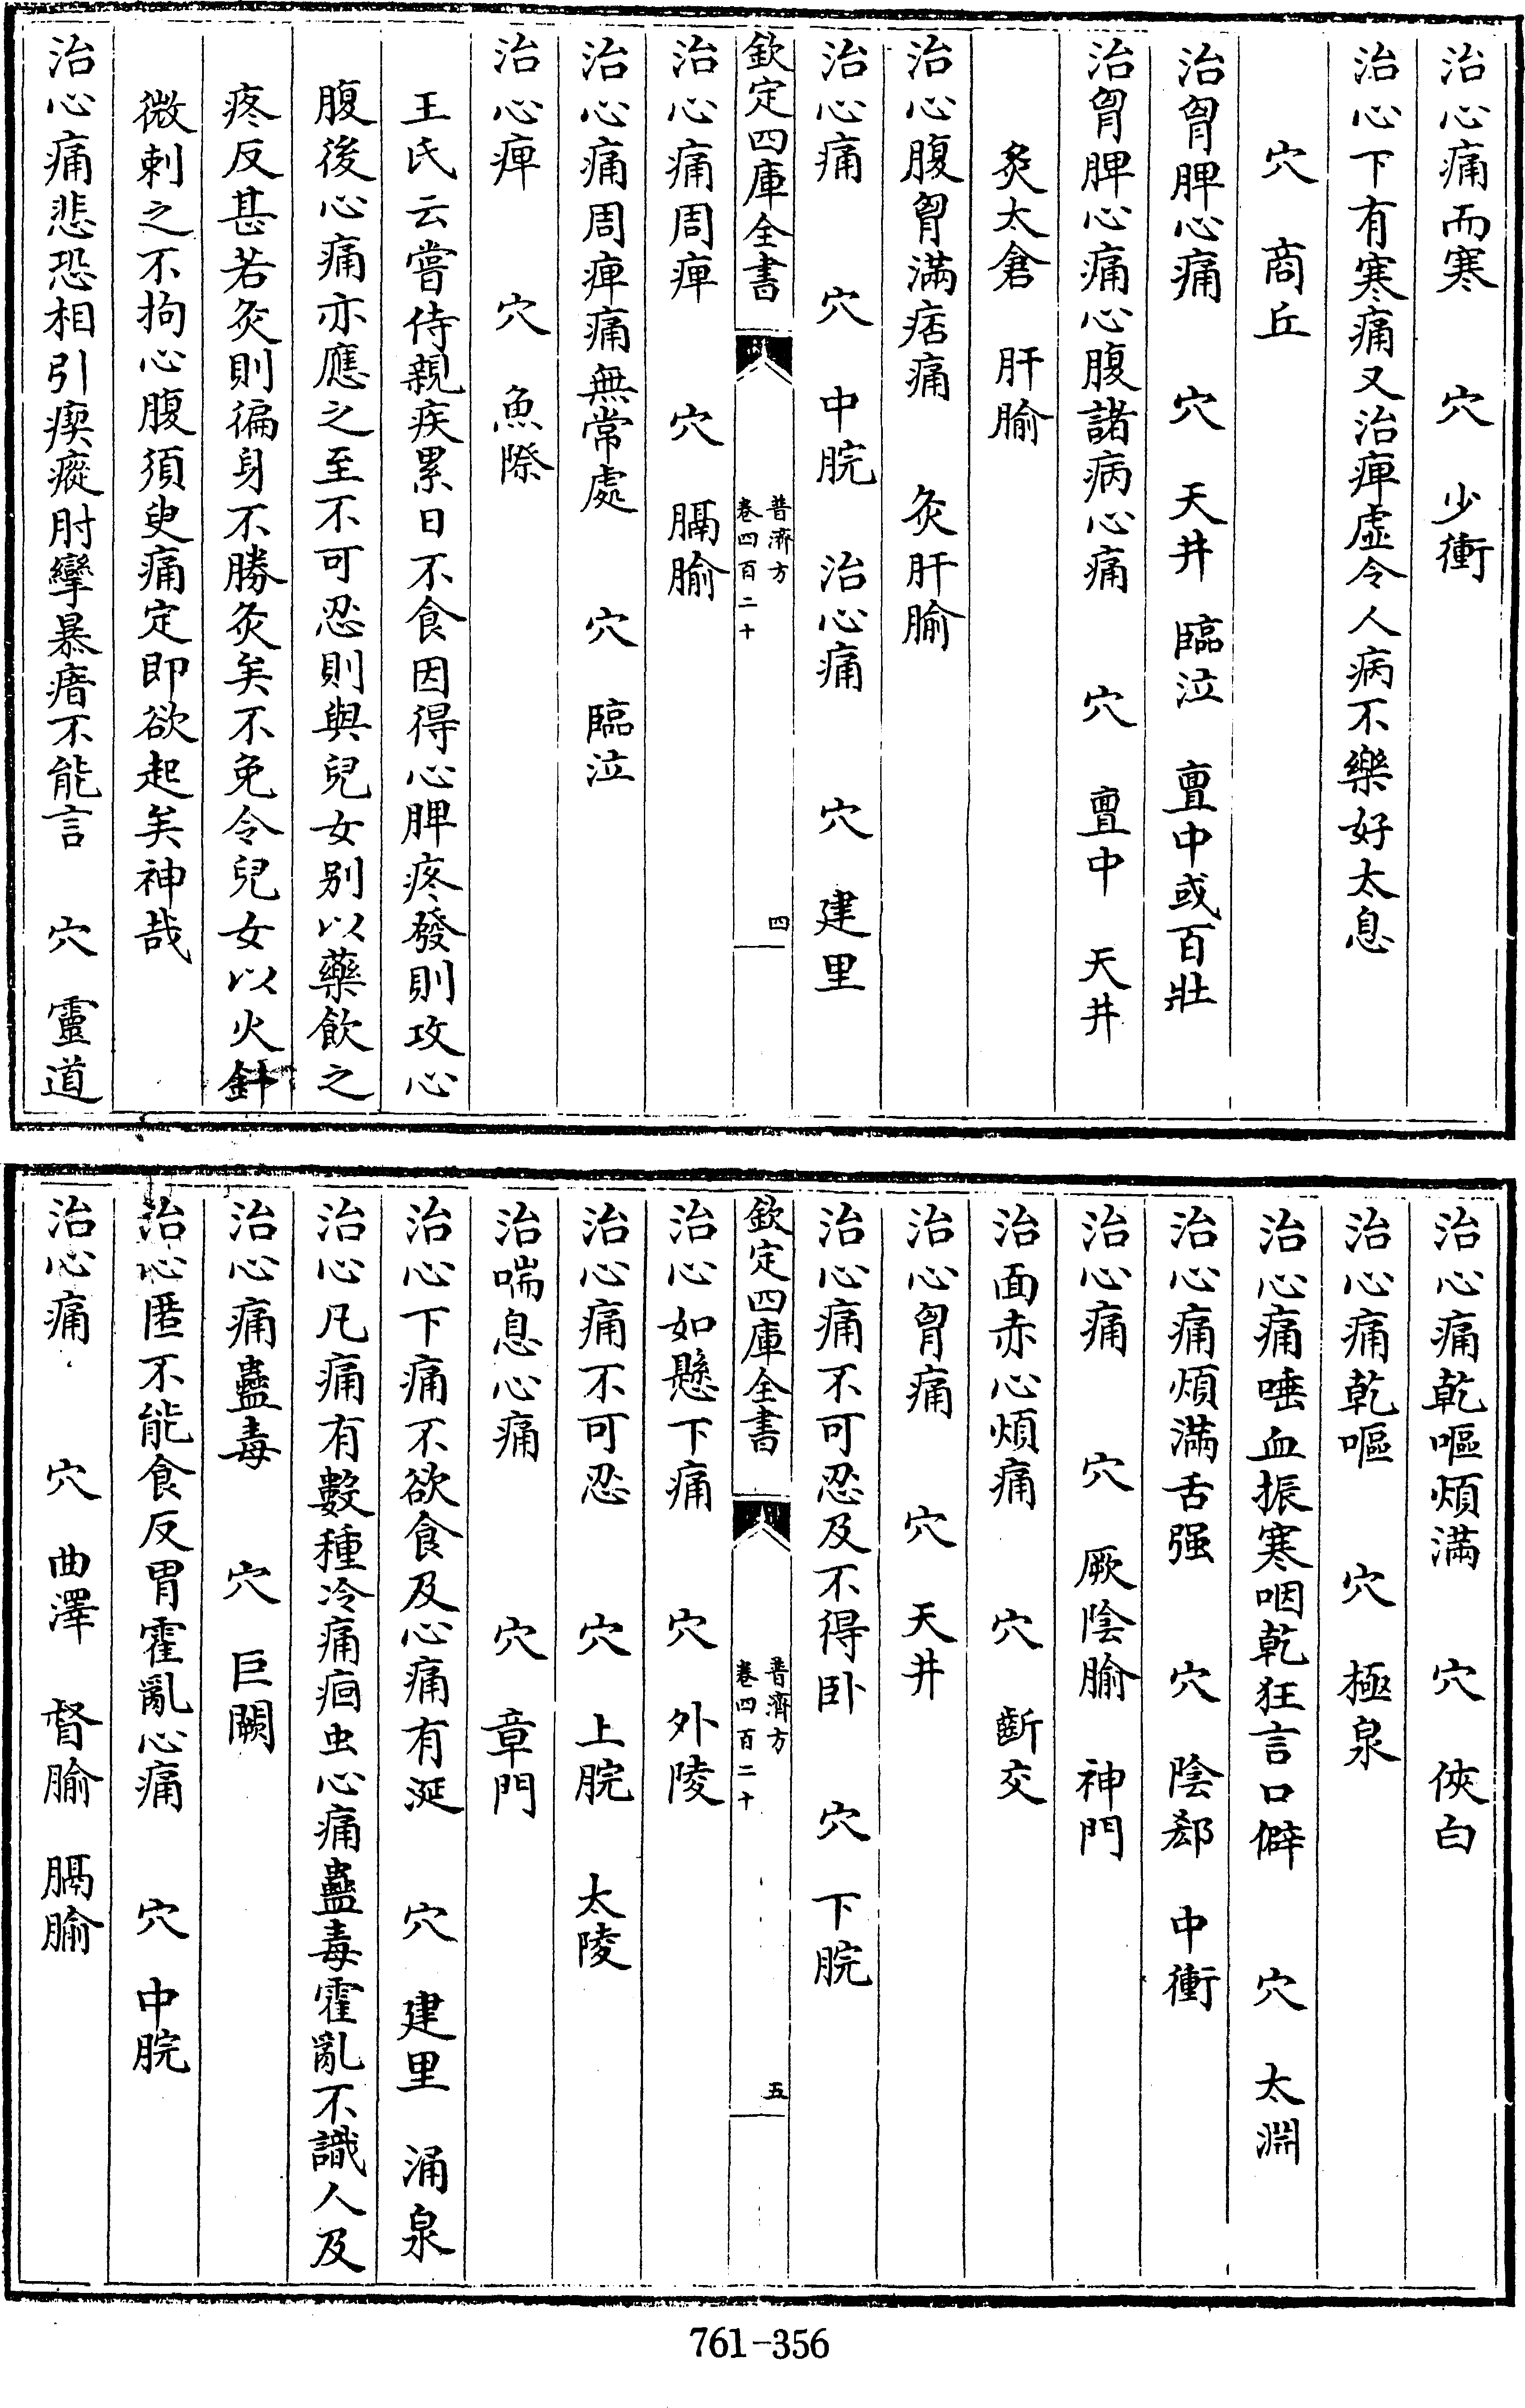 治心痛而寒　穴　少衝
治心下有寒痛又治痺虚令人病不樂好太息
穴　商丘
治胷脾心痛　穴　天井　臨泣　亶中或百壯
治胷脾心痛心腹諸病心痛　穴　亶中　天井
炙太倉　肝腧
治心腹胷滿痞痛　灸肝腧
治心痛　穴　中脘　治心痛　穴　建里
欽定四庫全書　普濟方　卷四百二十　四
治心痛周痺　穴　膈腧
治心痛周痺痛無常處　穴　臨泣
治心痺　穴　魚際
王氏云嘗侍親疾累日不食因得心脾疼發則攻心
腹後心痛亦應之至不可忍則與兒女别以藥飲之
疼反甚若灸則徧身不勝灸矣不免令兒女以火針
微刺之不拘心腹須臾痛定即欲起矣神哉
治心痛悲恐相引瘈瘲肘攣暴瘖不能言　穴　靈道
治心痛乾嘔煩滿　穴　俠白
治心痛乾嘔　穴　極泉
治心痛唾血振寒咽乾狂言口僻　穴　太淵
治心痛煩滿舌强　穴　陰郄　中衝
治心痛　穴　厥陰腧　神門
治面赤心煩痛　穴　齗交
治心胷痛　穴　天井
治心痛不可忍及不得卧　穴　下脘
欽定四庫全書　普濟方　卷四百二十　五
治心如懸下痛　穴　外陵
治心痛不可忍　穴　上脘　太陵
治喘息心痛　穴　章門
治心下痛不欲食及心痛有涎　穴　建里　涌泉
治心凡痛有數種冷痛疸虫心痛蠱毒霍亂不識人及
治心痛蠱毒　穴　巨闕
治心匿不能食反胃霍亂心痛　穴　中脘
治心痛　穴　曲澤　督腧　膈腧
761-356